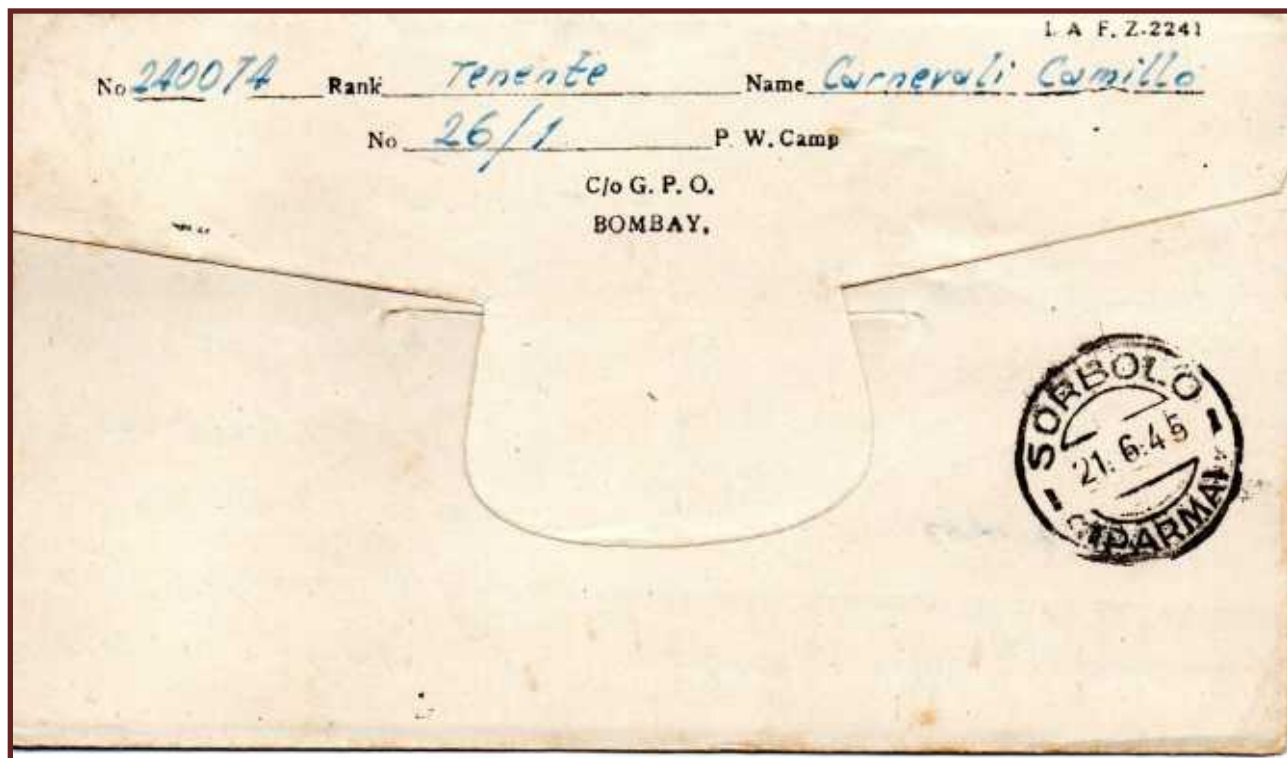 I. A F. Z-2241
No 240074 Rank Tenente Name Carnevali Camillo
No 26/1 P. W. Camp
C/o G. P. O.
BOMBAY.
- SORBOLO -
21.6.45
(PARMA)